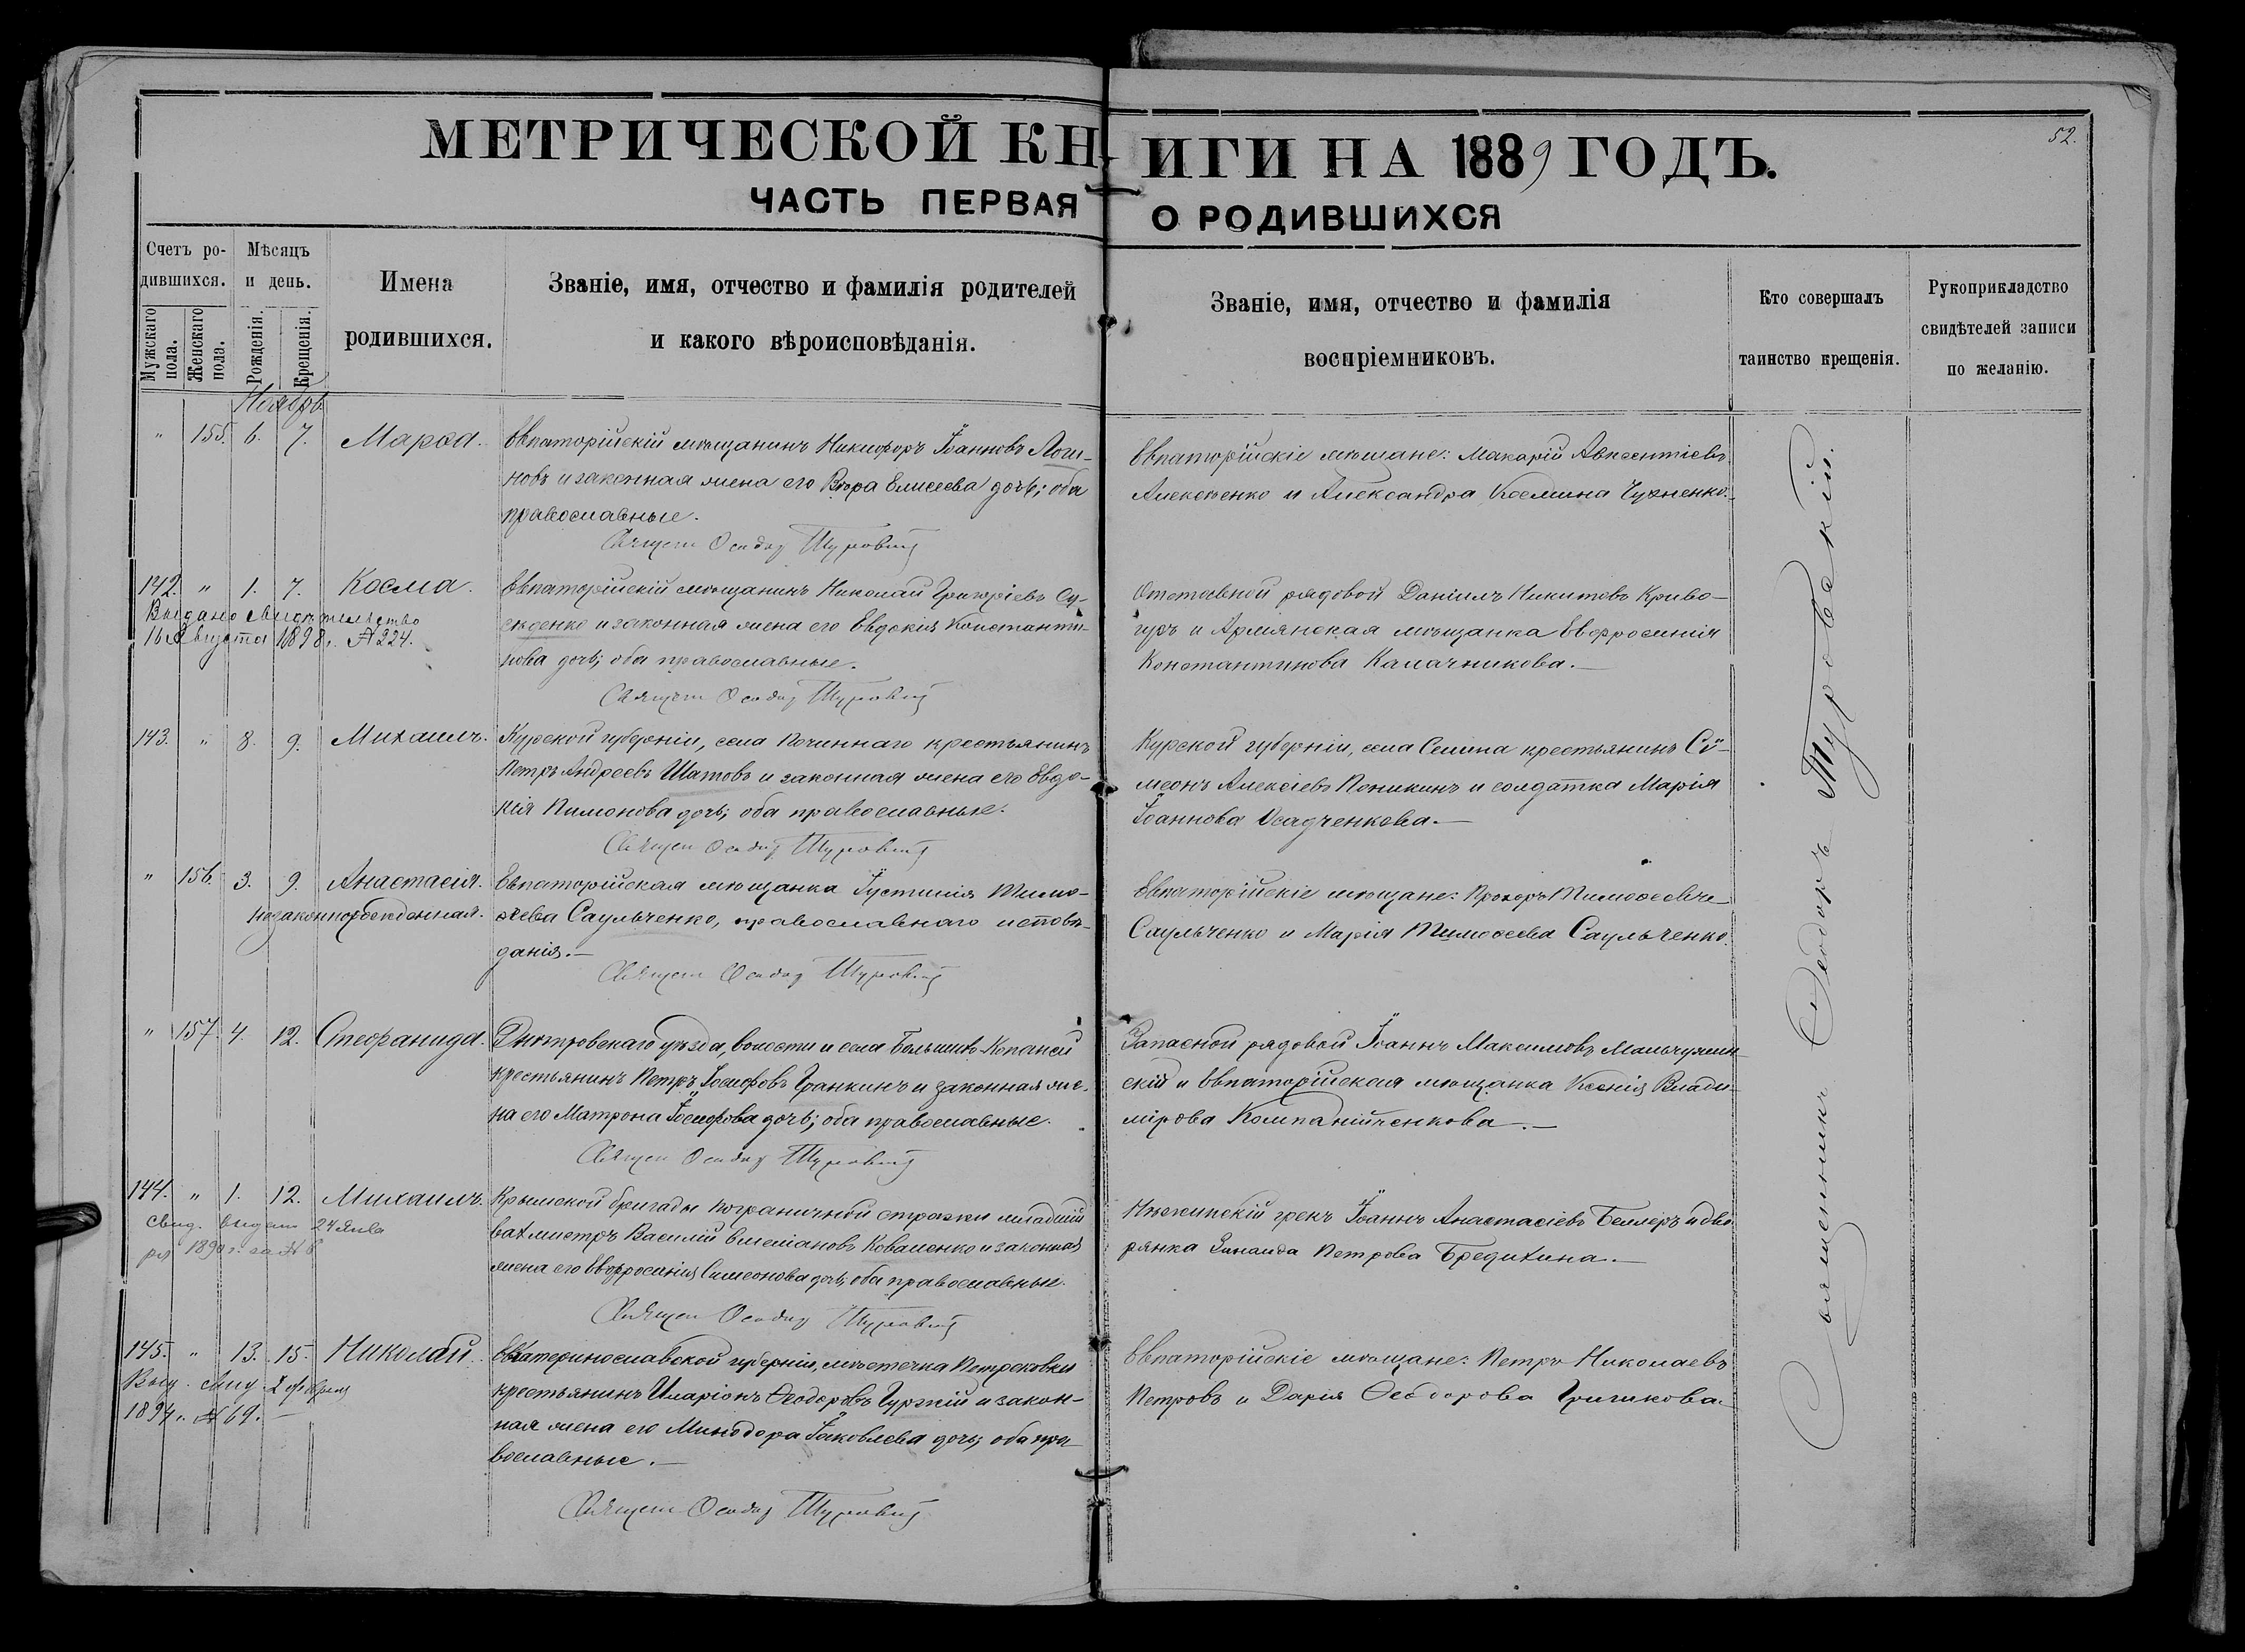 МЕТРИЧЕСКОЙ КНИГИ НА 1889 ГОДЪ.
52.
ЧАСТЬ ПЕРВАЯ О РОДИВШИХСЯ
Счетъ ро-
дившихся.
Мужскаго пола.
Женскаго пола.
Мѣсяцъ
и день.
Рожденія.
Крещенія.
Имена
родившихся.
Званіе, имя, отчество и фамилія родителей
и какого вѣроисповѣданія.
Званіе, имя, отчество и фамилія
воспріемниковъ.
Кто совершалъ
таинство крещенія.
Рукоприкладство
свидѣтелей записи
по желанію.
Ноябрь
" 155. 6. 7. Марѳа.
Евпаторійскій мѣщанинъ Никифоръ Іоанновъ Логи-
новъ и законная жена его Вѣра Елисеева дочь; оба
православные.
Священ Ѳеодор Туровскій
Евпаторійскіе мѣщане: Макарій Авксентіевъ
Алексѣенко и Александра Косьмина Чухненко.
142. " 1. 7. Косма.
Выдано свидѣтельство
16 Августа 1898 г. № 224.
Евпаторійскій мѣщанинъ Николай Григоріевъ
и законная жена его Евдокія Константи-
нова дочь; оба православные.
Священ Ѳеодор Туровскій
Отставной рядовой Даніилъ Никитовъ Криво-
и Армянская мѣщанка Евфросинія
Константинова Калачникова.
143. " 8. 9. Михаилъ.
Курской губерніи, села Починнаго крестьянинъ
Петръ Андреевъ Шатовъ и законная жена его Евдо-
кія Пимонова дочь; оба православные.
Священ Ѳеодор Туровскій
Курской губерніи, села Селина крестьянинъ Си-
меонъ Алексіевъ Поникинъ и солдатка Марія
Іоаннова Осадченкова.
" 156. 3. 9. Анастасія.
Незаконнорожденная.
Евпаторійская мѣщанка Іустинія Тимо-
ѳеева Саульченко, православнаго исповѣ-
данія.
Священ Ѳеодор Туровскій
Евпаторійскіе мѣщане: Прохоръ Тимоѳеевъ
Саульченко и Марія Тимоѳеева Саульченко.
" 157. 4. 12. Стефанида.
Днѣпровскаго уѣзда, волости и села Большихъ-Копаней
крестьянинъ Петръ Іосифовъ Гранкинъ и законная же-
на его Матрона Іосифова дочь; оба православные.
Священ Ѳеодор Туровскій
Запасной рядовой Іоаннъ Максимовъ Мальчужин-
скій и Евпаторійская мѣщанка Ксенія Влади-
мірова Компанійченкова.
144. " 1. 12. Михаилъ.
Свид. выдан 24 Янва
ря 1890 г. за № 6
Крымской бригады пограничной стражи младшій
вахмистръ Василій Емеліановъ Коваленко и законная
жена его Евфросинія Симеонова дочь; оба православные.
Священ Ѳеодор Туровскій
Нѣжинскій грекъ Іоаннъ Анастасіевъ Беллеръ и дво-
рянка Зинаида Петрова Бредихина.
145. " 13. 15. Николай.
Выд. свид 2 февраля
1897 г. № 69.
Екатеринославской губерніи, мѣстечка Петриковки
крестьянинъ Иларіонъ Ѳеодоровъ Гуржій и закон-
ная жена его Минодора Іаковлева дочь; оба пра-
вославные.
Священ Ѳеодор Туровскій
Евпаторійскіе мѣщане: Петръ Николаевъ
Петровъ и Дарія Ѳеодорова Гричикова.
Священникъ Ѳеодоръ Туровскій.